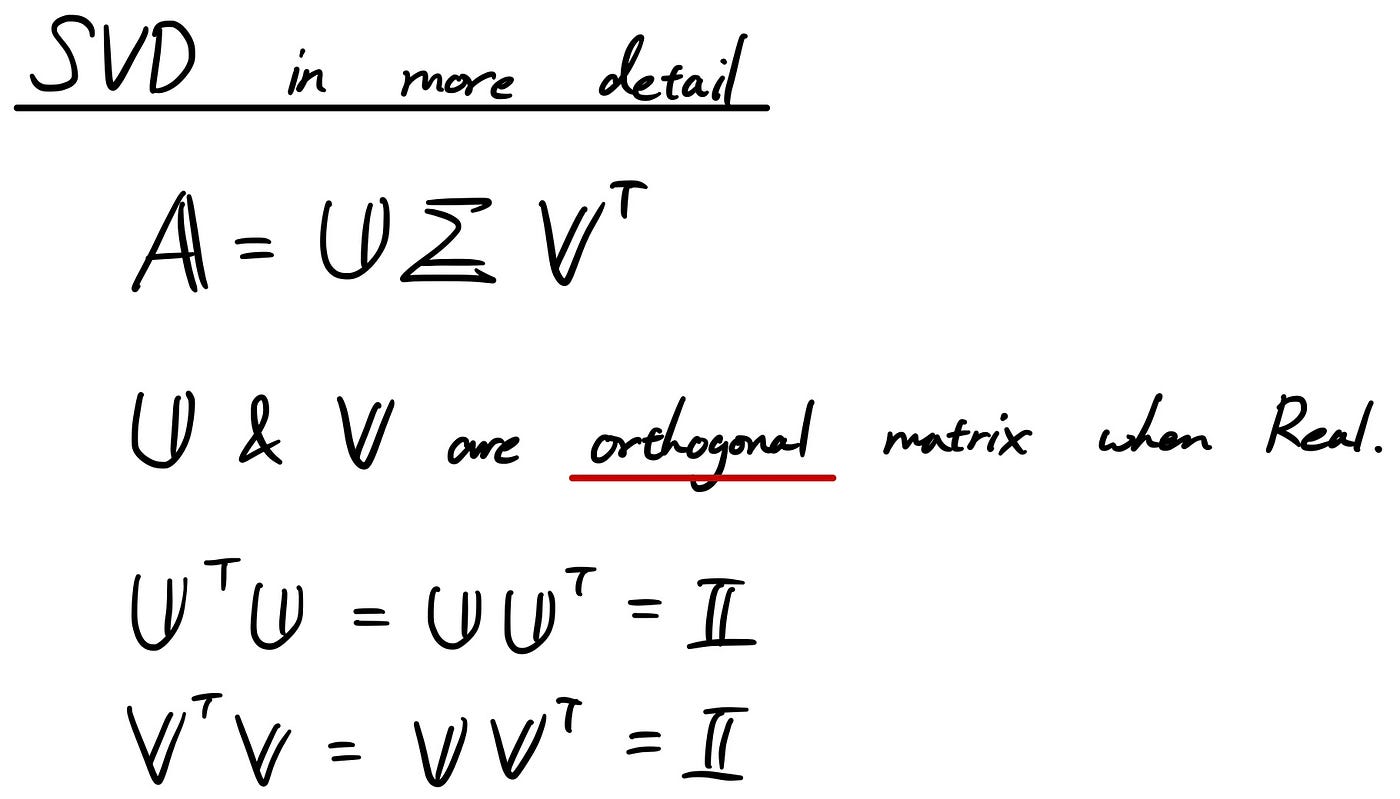 SVD in more detail
𝔸 = 𝕌Σ𝕍ᵀ
𝕌 & 𝕍 are orthogonal matrix when Real.
𝕌ᵀ𝕌 = 𝕌𝕌ᵀ = 𝕀
𝕍ᵀ𝕍 = 𝕍𝕍ᵀ = 𝕀